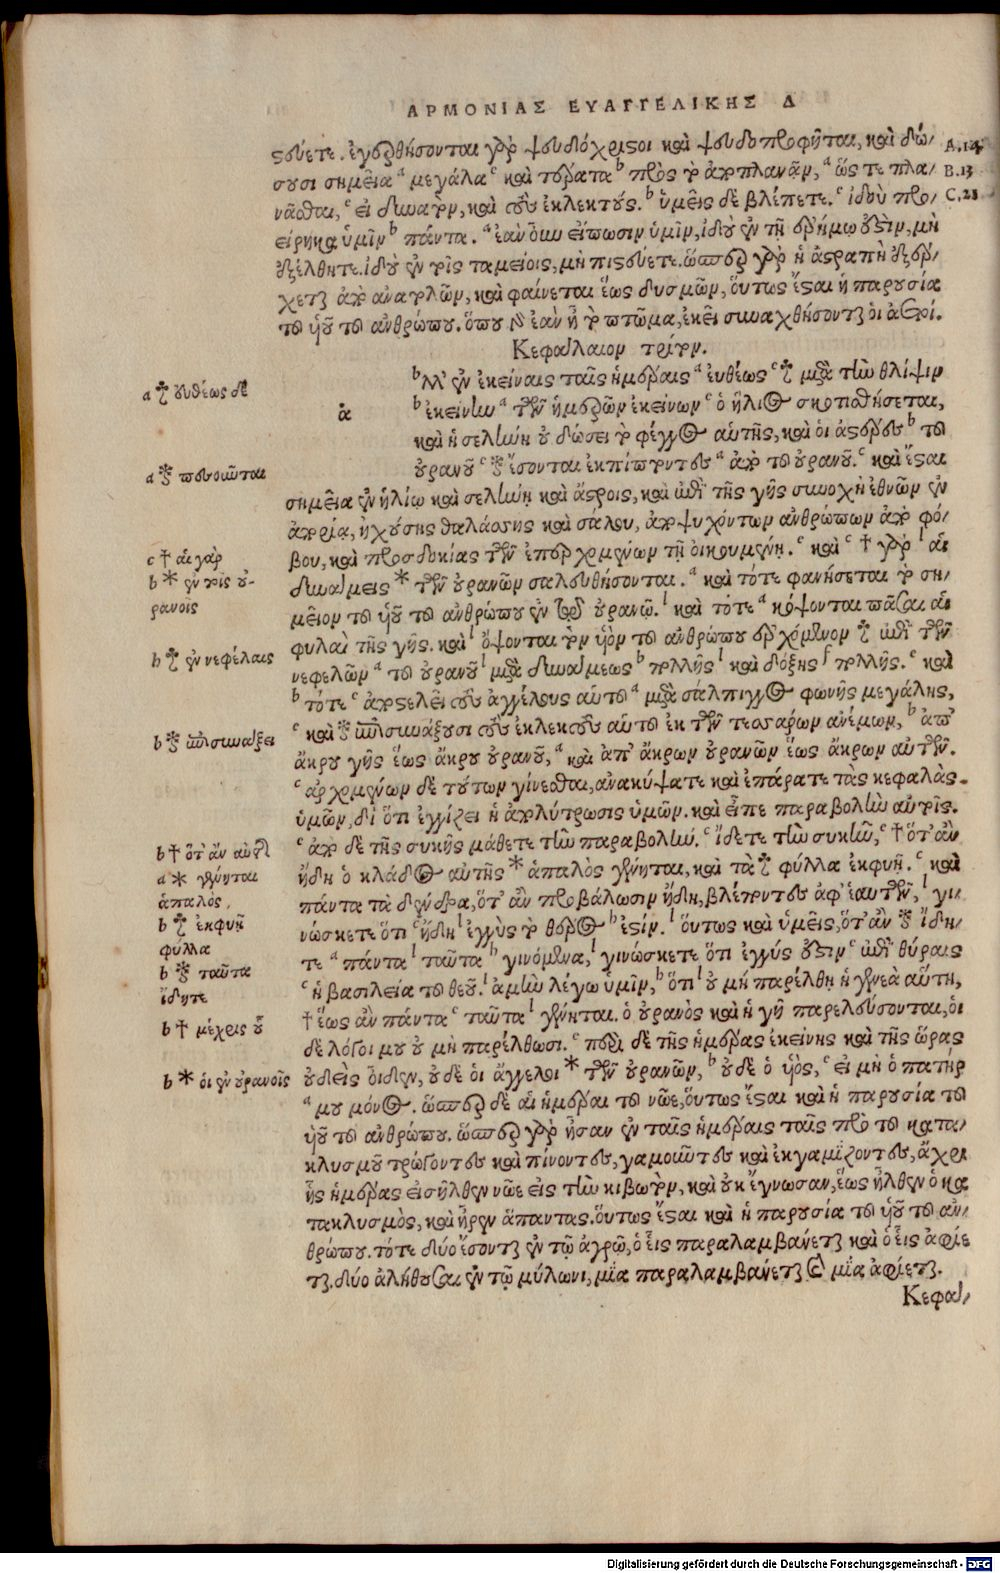 ΑΡΜΟΝΙΑΣ ΕΥΑΓΓΕΛΙΚΗΣ Δ
στεύετε. ἐγερθήσονται γὰρ ψευδόχριστοι καὶ ψευδοπροφῆται, καὶ δώ/
σουσι σημεῖα ᵃ μεγάλα ᶜ καὶ τέρατα ᵇ πρὸς τὸ ἀποπλανᾷν, ᵃ ὥς τε πλα/
νᾶσθαι, ᶜ εἰ δυνατὸν, καὶ τοὺς ἐκλεκτούς. ᵇ ὑμεῖς δὲ βλέπετε. ᶜ ἰδοὺ προ/
είρηκα ὑμῖν ᵇ πάντα. ᵃ ἐὰν οὖν εἴπωσιν ὑμῖν, ἰδοὺ ἐν τῇ ἐρήμῳ ἐστὶν, μὴ
ἐξέλθητε. ἰδοὺ ἐν τοῖς ταμείοις, μὴ πιστεύετε. ὥσπερ γὰρ ἡ ἀστραπὴ ἐξέρ/
χεται ἀπὸ ἀνατολῶν, καὶ φαίνεται ἕως δυσμῶν, οὕτως ἔσται ἡ παρουσία
τοῦ ἱοῦ τοῦ ἀνθρώπου. ὅπου γὰρ ἐὰν ᾖ τὸ πτῶμα, ἐκεῖ συναχθήσονται οἱ ἀετοί.
A.14
B.13
C.21
Κεφάλαιον τρίτον.
ᵇ Ἀλλ' ἐν ἐκείναις ταῖς ἡμέραις ᵃ εὐθέως ᶜ ☩ μετὰ τὴν θλίψιν
ᵇ ἐκείνην ᵃ τῶν ἡμερῶν ἐκείνων ᶜ ὁ ἥλιος σκοτισθήσεται,
καὶ ἡ σελήνη οὐ δώσει τὸ φέγγος αὑτῆς, καὶ οἱ ἀστέρες ᵇ τοῦ
οὐρανοῦ ᶜ ※ ἔσονται ἐκπίπτοντες ᵃ ἀπὸ τοῦ οὐρανοῦ. ᶜ καὶ ἔσται
σημεῖα ἐν ἡλίῳ καὶ σελήνῃ καὶ ἄστροις, καὶ ἐπὶ τῆς γῆς συνοχὴ ἐθνῶν ἐν
ἀπορίᾳ, ἠχούσης θαλάσσης καὶ σάλου, ἀποψυχόντων ἀνθρώπων ἀπὸ φό/
βου, καὶ προσδοκίας τῶν ἐπερχομένων τῇ οἰκουμένῃ. ᶜ καὶ ᶜ † γὰρ ˡ αἱ
δυνάμεις * τῶν οὐρανῶν σαλευθήσονται. ᵃ καὶ τότε φανήσεται τὸ ση/
μεῖον τοῦ ἱοῦ τοῦ ἀνθρώπου ἐν τῷ οὐρανῷ. ˡ καὶ τότε ᵃ κόψονται πᾶσαι αἱ
φυλαὶ τῆς γῆς. καὶ ˡ ὄψονται τὸν ἱὸν τοῦ ἀνθρώπου ἐρχόμενον ☩ ἐπὶ τῶν
νεφελῶν ᵃ τοῦ οὐρανοῦ ˡ μετὰ δυνάμεως ᵇ πολλῆς ˡ καὶ δόξης ᶠ πολλῆς. ᶜ καὶ
ᵇ τότε ᶜ ἀποστελεῖ τοὺς ἀγγέλους αὑτοῦ ᵃ μετὰ σάλπιγγος φωνῆς μεγάλης,
ᶜ καὶ ※ ἐπισυνάξουσι τοὺς ἐκλεκτοὺς αὑτοῦ ἐκ τῶν τεσσάρων ἀνέμων, ᵇ ἀπ'
ἄκρου γῆς ἕως ἄκρου οὐρανοῦ, ᵃ καὶ ἀπ' ἄκρων οὐρανῶν ἕως ἄκρων αὐτῶν.
ᶜ ἀρχομένων δὲ τούτων γίνεσθαι, ἀνακύψατε καὶ ἐπάρατε τὰς κεφαλὰς
ὑμῶν, δι ὅτι ἐγγίζει ἡ ἀπολύτρωσις ὑμῶν. καὶ εἶπε παραβολὴν αὐτοῖς.
ᶜ ἀπὸ δὲ τῆς συκῆς μάθετε τὴν παραβολήν. ᶜ ἴδετε τὴν συκῆν, ᶜ † ὅτ' ἂν
ἤδη ὁ κλάδος αὐτῆς * ἁπαλὸς γένηται, καὶ τὰ ☩ φύλλα ἐκφυῇ. ᶜ καὶ
πάντα τὰ δένδρα, ὅτ' ἂν προβάλωσιν ἤδη, βλέποντες ἀφ' ἑαυτῶν, ˡ γι/
νώσκετε ὅτι ᶜ ἤδη ˡ ἐγγὺς τὸ θέρος ᵇ ἐστίν. ˡ οὕτως καὶ ὑμεῖς, ὅτ' ἂν ※ ἴδη/
τε ᵃ πάντα ˡ ταῦτα ᵇ γινόμενα, ˡ γινώσκετε ὅτι ἐγγύς ἐστιν ᶜ ἐπὶ θύραις
ᶜ ἡ βασιλεία τοῦ θεοῦ. ˡ ἀμὴν λέγω ὑμῖν, ᵇ ὅτι ˡ οὐ μὴ παρέλθῃ ἡ γενεὰ αὕτη,
† ἕως ἂν πάντα ᶜ ταῦτα ˡ γένηται. ὁ οὐρανὸς καὶ ἡ γῆ παρελεύσονται, οἱ
δὲ λόγοι μου οὐ μὴ παρέλθωσι. ᶜ περὶ δὲ τῆς ἡμέρας ἐκείνης καὶ τῆς ὥρας
οὐδεὶς οἶδεν, οὐδὲ οἱ ἄγγελοι * τῶν οὐρανῶν, ᵇ οὐδὲ ὁ ἱὸς, ᶜ εἰ μὴ ὁ πατήρ
ᵃ μου μόνος. ὥσπερ δὲ αἱ ἡμέραι τοῦ νῶε, οὕτως ἔσται καὶ ἡ παρουσία τοῦ
ἱοῦ τοῦ ἀνθρώπου. ὥσπερ γὰρ ἦσαν ἐν ταῖς ἡμέραις ταῖς πρὸ τοῦ κατα/
κλυσμοῦ τρώγοντες καὶ πίνοντες, γαμοῦντες καὶ ἐκγαμίζοντες, ἄχρι
ἧς ἡμέρας εἰσῆλθεν νῶε εἰς τὴν κιβωτὸν, καὶ οὐκ ἔγνωσαν, ἕως ἦλθεν ὁ κα
τακλυσμὸς, καὶ ἦρεν ἅπαντας. οὕτως ἔσται καὶ ἡ παρουσία τοῦ ἱοῦ τοῦ ἀν/
θρώπου. τότε δύο ἔσονται ἐν τῷ ἀγρῷ, ὁ εἷς παραλαμβάνεται καὶ ὁ εἷς ἀφίε
ται. δύο ἀλήθουσαι ἐν τῷ μύλωνι, μία παραλαμβάνεται καὶ μία ἀφίεται.
Κεφάλ/
a ☩ εὐθέως δὲ
α
a ※ πεσοῦνται
c † αἱ γὰρ
b * ἐν τοῖς οὐ-
ρανοῖς
b ☩ ἐν νεφέλαις
b ※ ἐπισυνάξει
b † ὅτ' ἂν αὐτῆς
a * γένηται
ἁπαλὸς,
b ☩ ἐκφυῇ
φύλλα
b ※ ταῦτα
ἴδητε
b † μέχρις οὗ
b * οἱ ἐν οὐρανοῖς
Digitalisierung gefördert durch die Deutsche Forschungsgemeinschaft - DFG